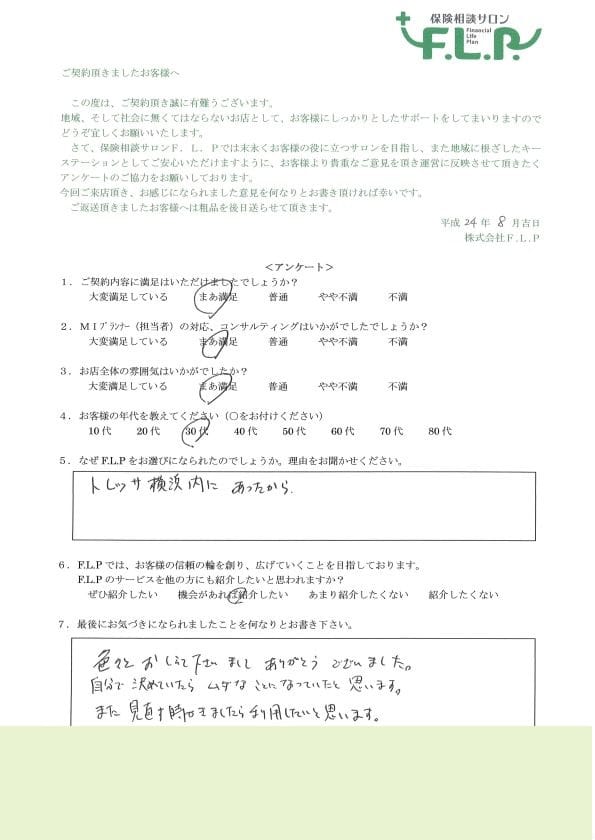 保険相談サロン
F.L.P.
Financial
Life
Plan
ご契約頂きましたお客様へ
この度は、ご契約頂き誠に有難うございます。
地域、そして社会に無くてはならないお店として、お客様にしっかりとしたサポートをしてまいりますので
どうぞ宜しくお願いいたします。
さて、保険相談サロンF．L．Pでは末永くお客様の役に立つサロンを目指し、また地域に根ざしたキー
ステーションとしてご安心いただけますように、お客様より貴重なご意見を頂き運営に反映させて頂きたく
アンケートのご協力をお願いしております。
今回ご来店頂き、お感じになられました意見を何なりとお書き頂ければ幸いです。
ご返送頂きましたお客様へは粗品を後日送らせて頂きます。
平成 24 年 8 月吉日
株式会社F.L.P
＜アンケート＞
1．ご契約内容に満足はいただけましたでしょうか？
大変満足している　まあ満足　普通　やや不満　不満
2．MIプランナー（担当者）の対応、コンサルティングはいかがでしたでしょうか？
大変満足している　まあ満足　普通　やや不満　不満
3．お店全体の雰囲気はいかがでしたか？
大変満足している　まあ満足　普通　やや不満　不満
4．お客様の年代を教えてください（○をお付けください）
10代　20代　30代　40代　50代　60代　70代　80代
5．なぜF.L.Pをお選びになられたのでしょうか。理由をお聞かせください。
トレッサ横浜内に あったから.
6．F.L.Pでは、お客様の信頼の輪を創り、広げていくことを目指しております。
F.L.Pのサービスを他の方にも紹介したいと思われますか？
ぜひ紹介したい　機会があれば紹介したい　あまり紹介したくない　紹介したくない
7．最後にお気づきになられましたことを何なりとお書き下さい。
色々と おしえて下さいまして ありがとう ございました。
自分で 決めていたら ムダな ことに なっていたと 思います。
また 見直す時がきましたら 利用したいと 思います。